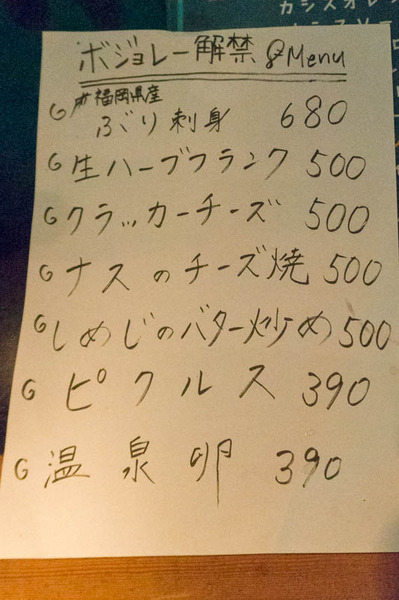 カシスオレ
ボジョレー解禁 & Menu
G #福岡県産
ぶり刺身 680
G 生ハーブフランク 500
G クラッカーチーズ 500
G ナスのチーズ焼 500
G しめじのバター炒め 500
G ピクルス 390
G 温泉卵 390